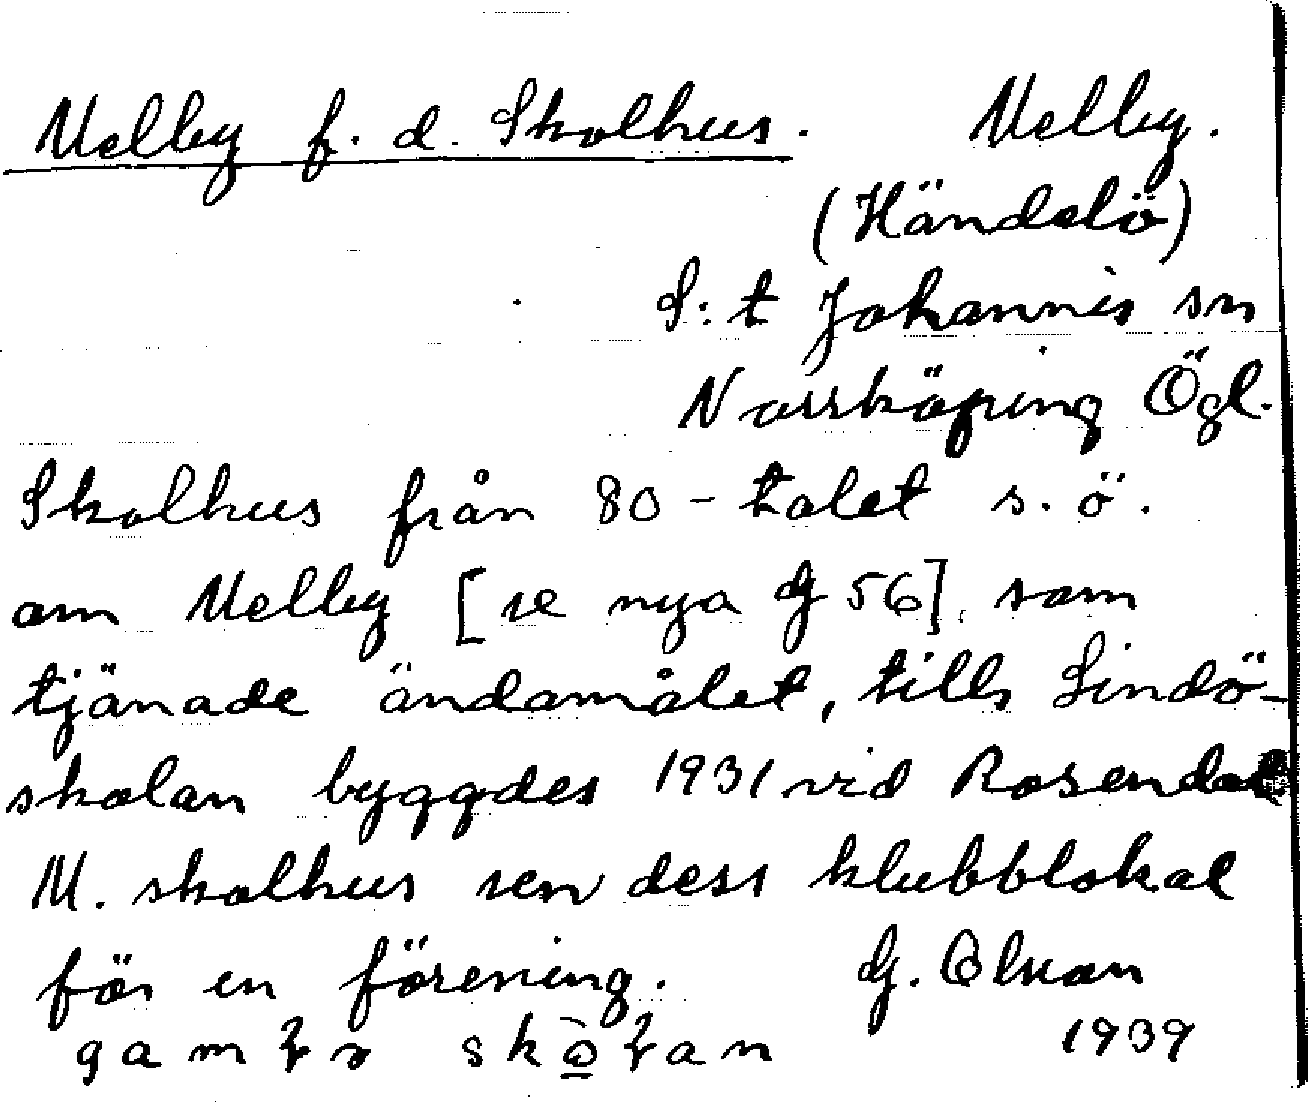 Melby f. d. Skolhus. Melby.
(Händelö)
S:t Johannis sn
Norrköping Ögl.
Skolhus från 80-talet s. ö.
om Melby [se nya G 56] som
tjänade ändamålet, tills Lindö-
skolan byggdes 1931 vid Rosendal
M. skolhus sen dess klubblokal
för en förening. G. Olson
1939